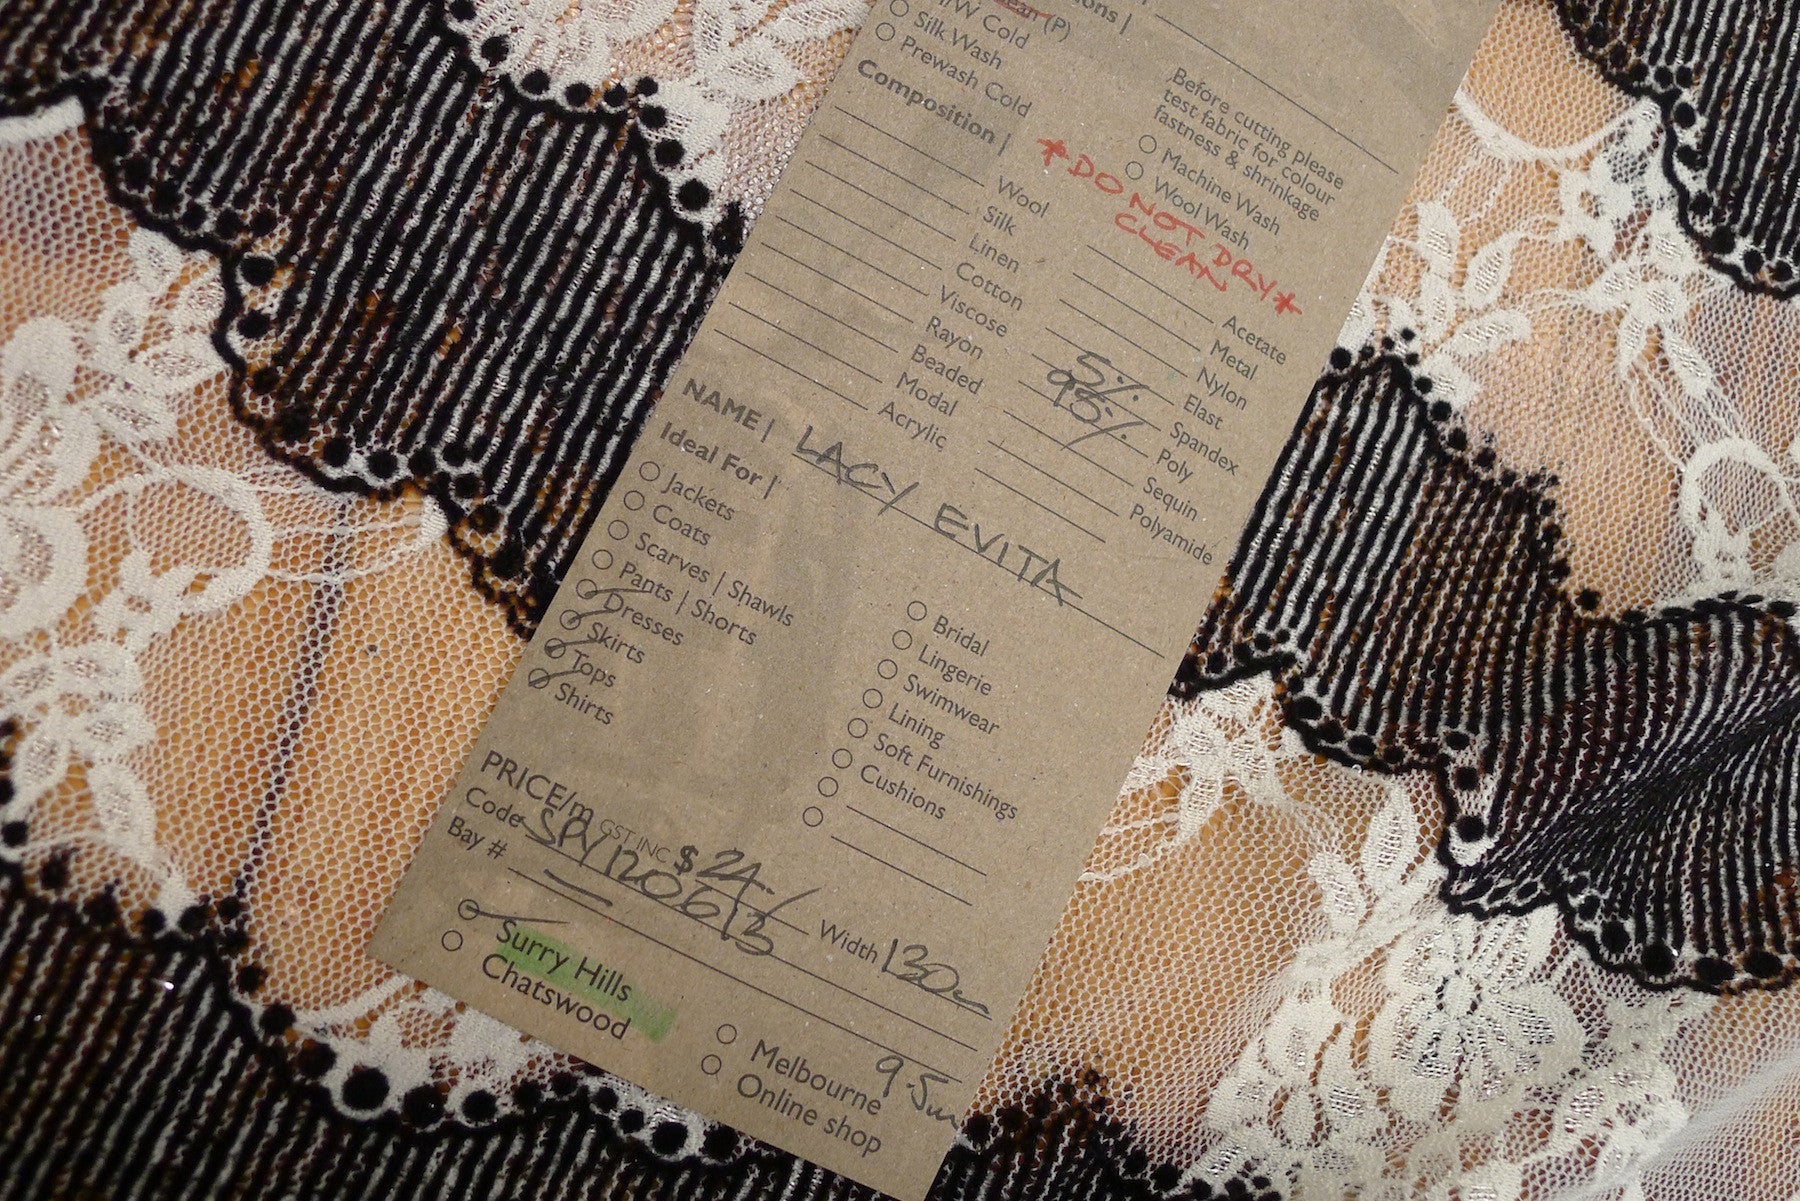 (P)
H/W Cold
Silk Wash
Prewash Cold
Before cutting please
test fabric for colour
fastness & shrinkage
Machine Wash
Wool Wash
*DO NOT DRY*
CLEAN
Composition |
Wool
Silk
Linen
Cotton
Viscose
Rayon
Beaded
Modal
Acrylic
Acetate
Metal
Nylon
Elast
5% Spandex
95% Poly
Sequin
Polyamide
NAME | LACY EVITA
Ideal For |
Jackets
Coats
Scarves | Shawls
Pants | Shorts
Dresses
Skirts
Tops
Shirts
Bridal
Lingerie
Swimwear
Lining
Soft Furnishings
Cushions
PRICE/m GST INC $24.
Code SPY120613 Width 130
Bay #
Surry Hills
Chatswood
Melbourne
Online shop
9.5m